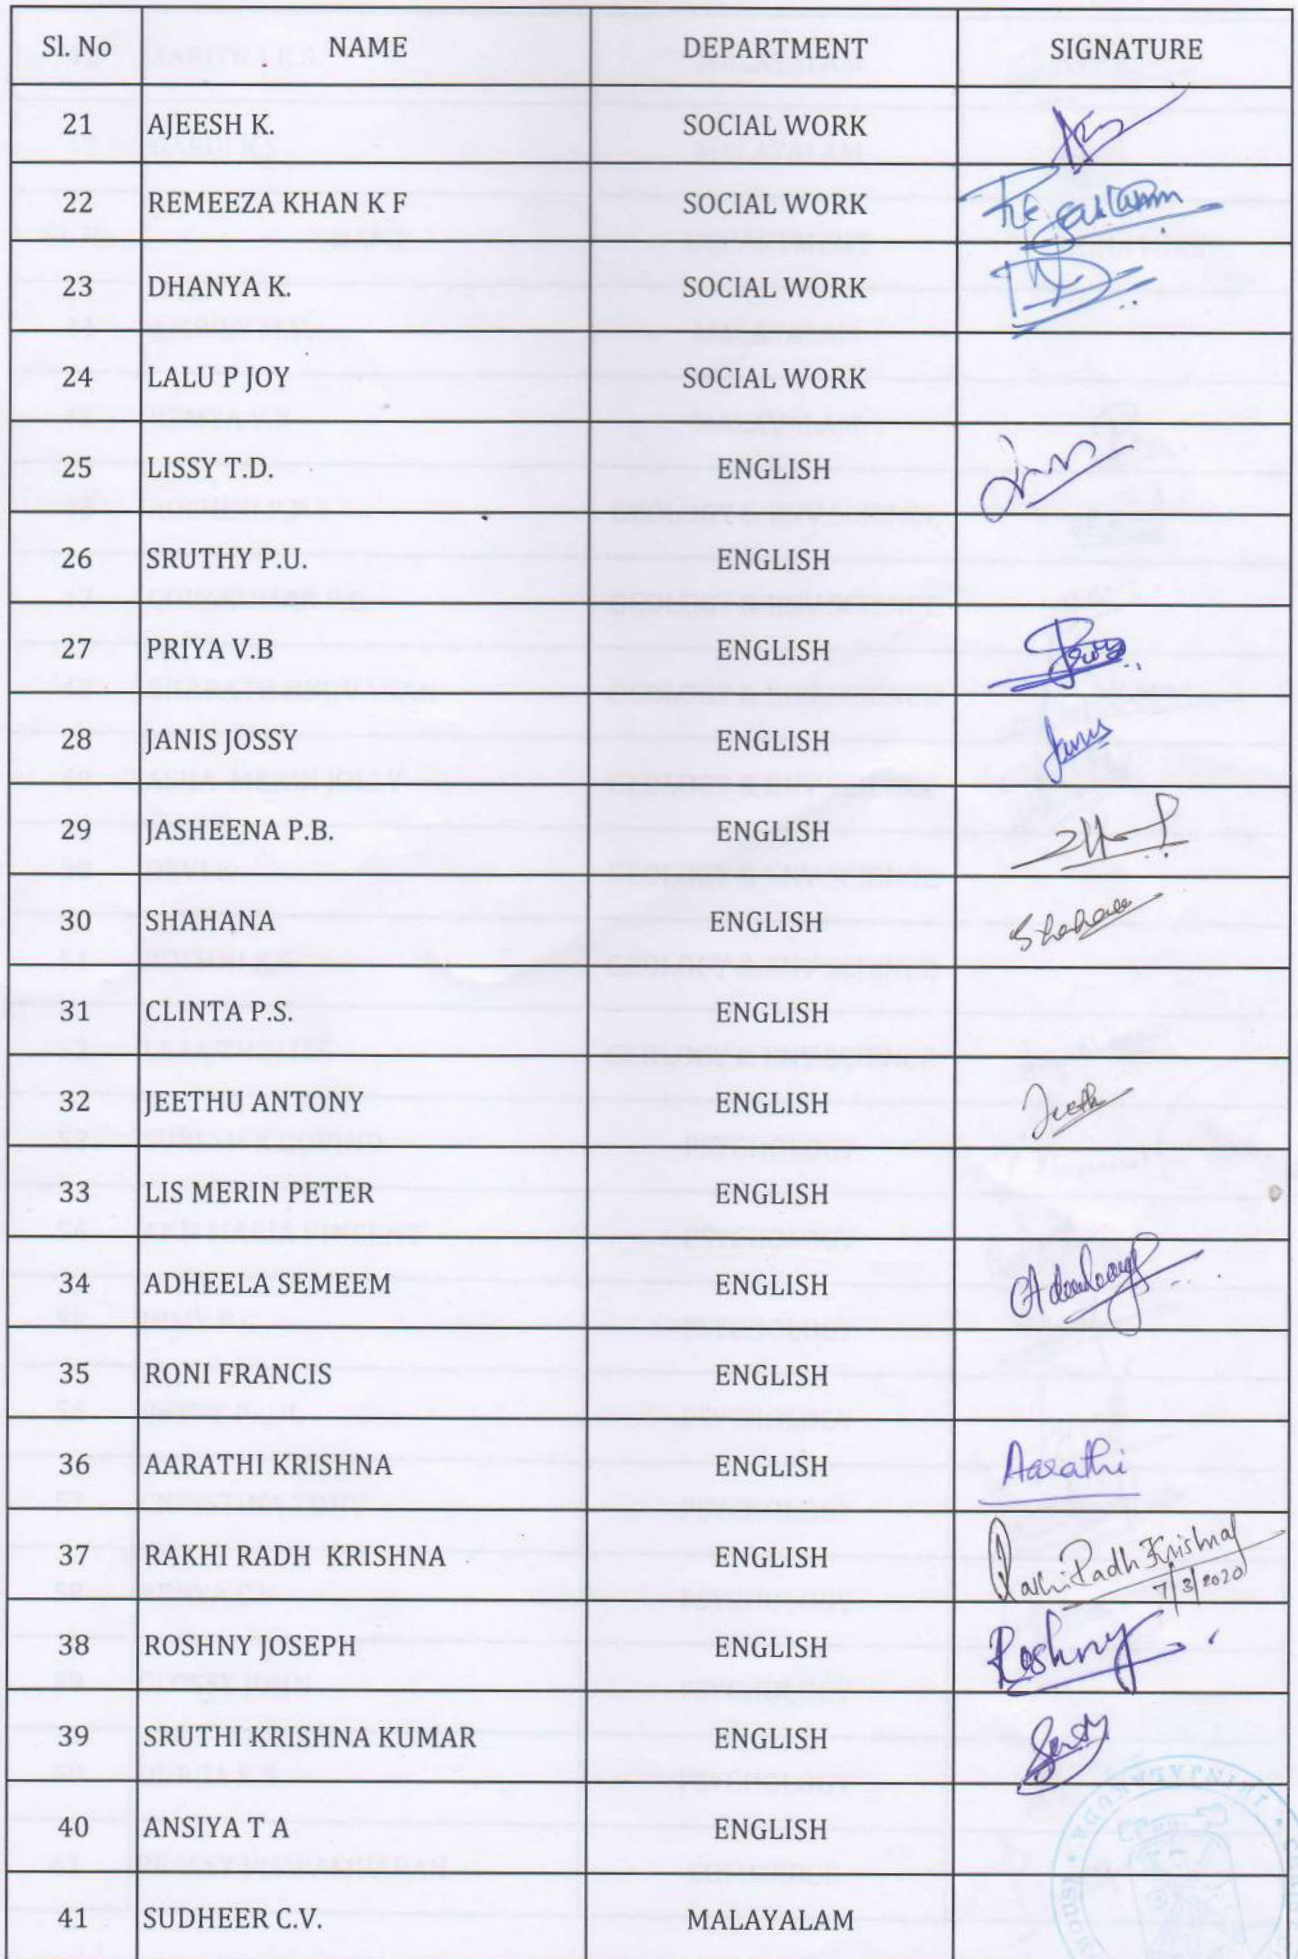 Sl. No NAME DEPARTMENT SIGNATURE
21 AJEESH K. SOCIAL WORK
22 REMEEZA KHAN K F SOCIAL WORK
23 DHANYA K. SOCIAL WORK
24 LALU P JOY SOCIAL WORK
25 LISSY T.D. ENGLISH
26 SRUTHY P.U. ENGLISH
27 PRIYA V.B ENGLISH
28 JANIS JOSSY ENGLISH Janis
29 JASHEENA P.B. ENGLISH
30 SHAHANA ENGLISH Shahana
31 CLINTA P.S. ENGLISH
32 JEETHU ANTONY ENGLISH Jeethu
33 LIS MERIN PETER ENGLISH
34 ADHEELA SEMEEM ENGLISH
35 RONI FRANCIS ENGLISH
36 AARATHI KRISHNA ENGLISH Aarathi
37 RAKHI RADH KRISHNA ENGLISH Rakhi Radh Krishna
7/3/2020
38 ROSHNY JOSEPH ENGLISH Roshny
39 SRUTHI KRISHNA KUMAR ENGLISH
40 ANSIYA T A ENGLISH
41 SUDHEER C.V. MALAYALAM